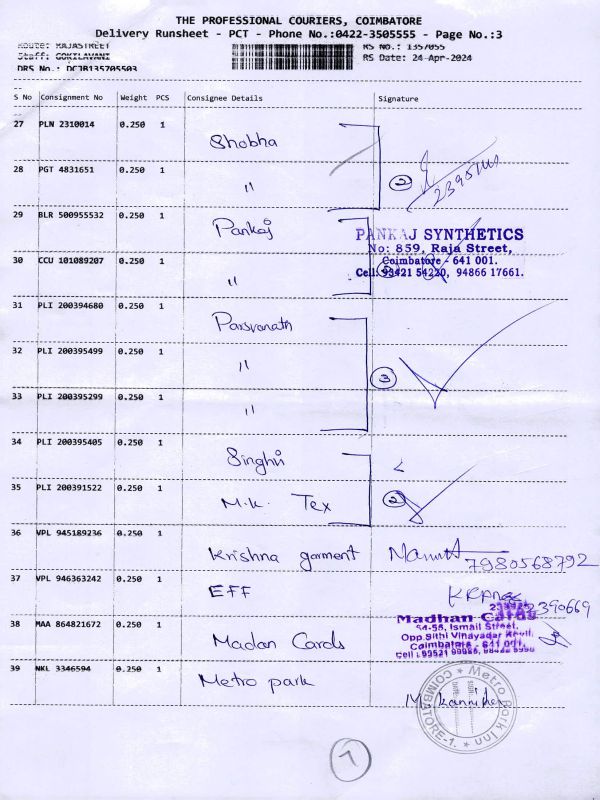 THE PROFESSIONAL COURIERS, COIMBATORE
Delivery Runsheet - PCT - Phone No.:0422-3505555 - Page No.:3
Route: RAJASTREET
RS No.: 1357055
Staff: GOKILAVANI
RS Date: 24-Apr-2024
DRS No.: DCJB135705503
S No Consignment No Weight PCS Consignee Details Signature
27 PLN 2310014 0.250 1 Shobha
28 PGT 4831651 0.250 1 "
2
29 BLR 500955532 0.250 1 Pankaj
PANKAJ SYNTHETICS
No: 859, Raja Street,
30 CCU 101089207 0.250 1 "
Coimbatore - 641 001.
Cell: 93421 54220, 94866 17661.
31 PLI 200394680 0.250 1 Parsvanath
32 PLI 200395499 0.250 1 "
3
33 PLI 200395299 0.250 1 "
34 PLI 200395405 0.250 1 Singhvi
35 PLI 200391522 0.250 1 M.K. Tex
2
36 VPL 945189236 0.250 1 Krishna garment
7980568792
37 VPL 946363242 0.250 1 EFF
38 MAA 864821672 0.250 1 Madan Cards
Madhan Cards
54-55, Ismail Street,
Opp. Sithi Vinayagar Kovil,
Coimbatore - 641 001,
39 NKL 3346594 0.250 1 Metro park
Metro Park Inn
COIMBATORE-1.
7